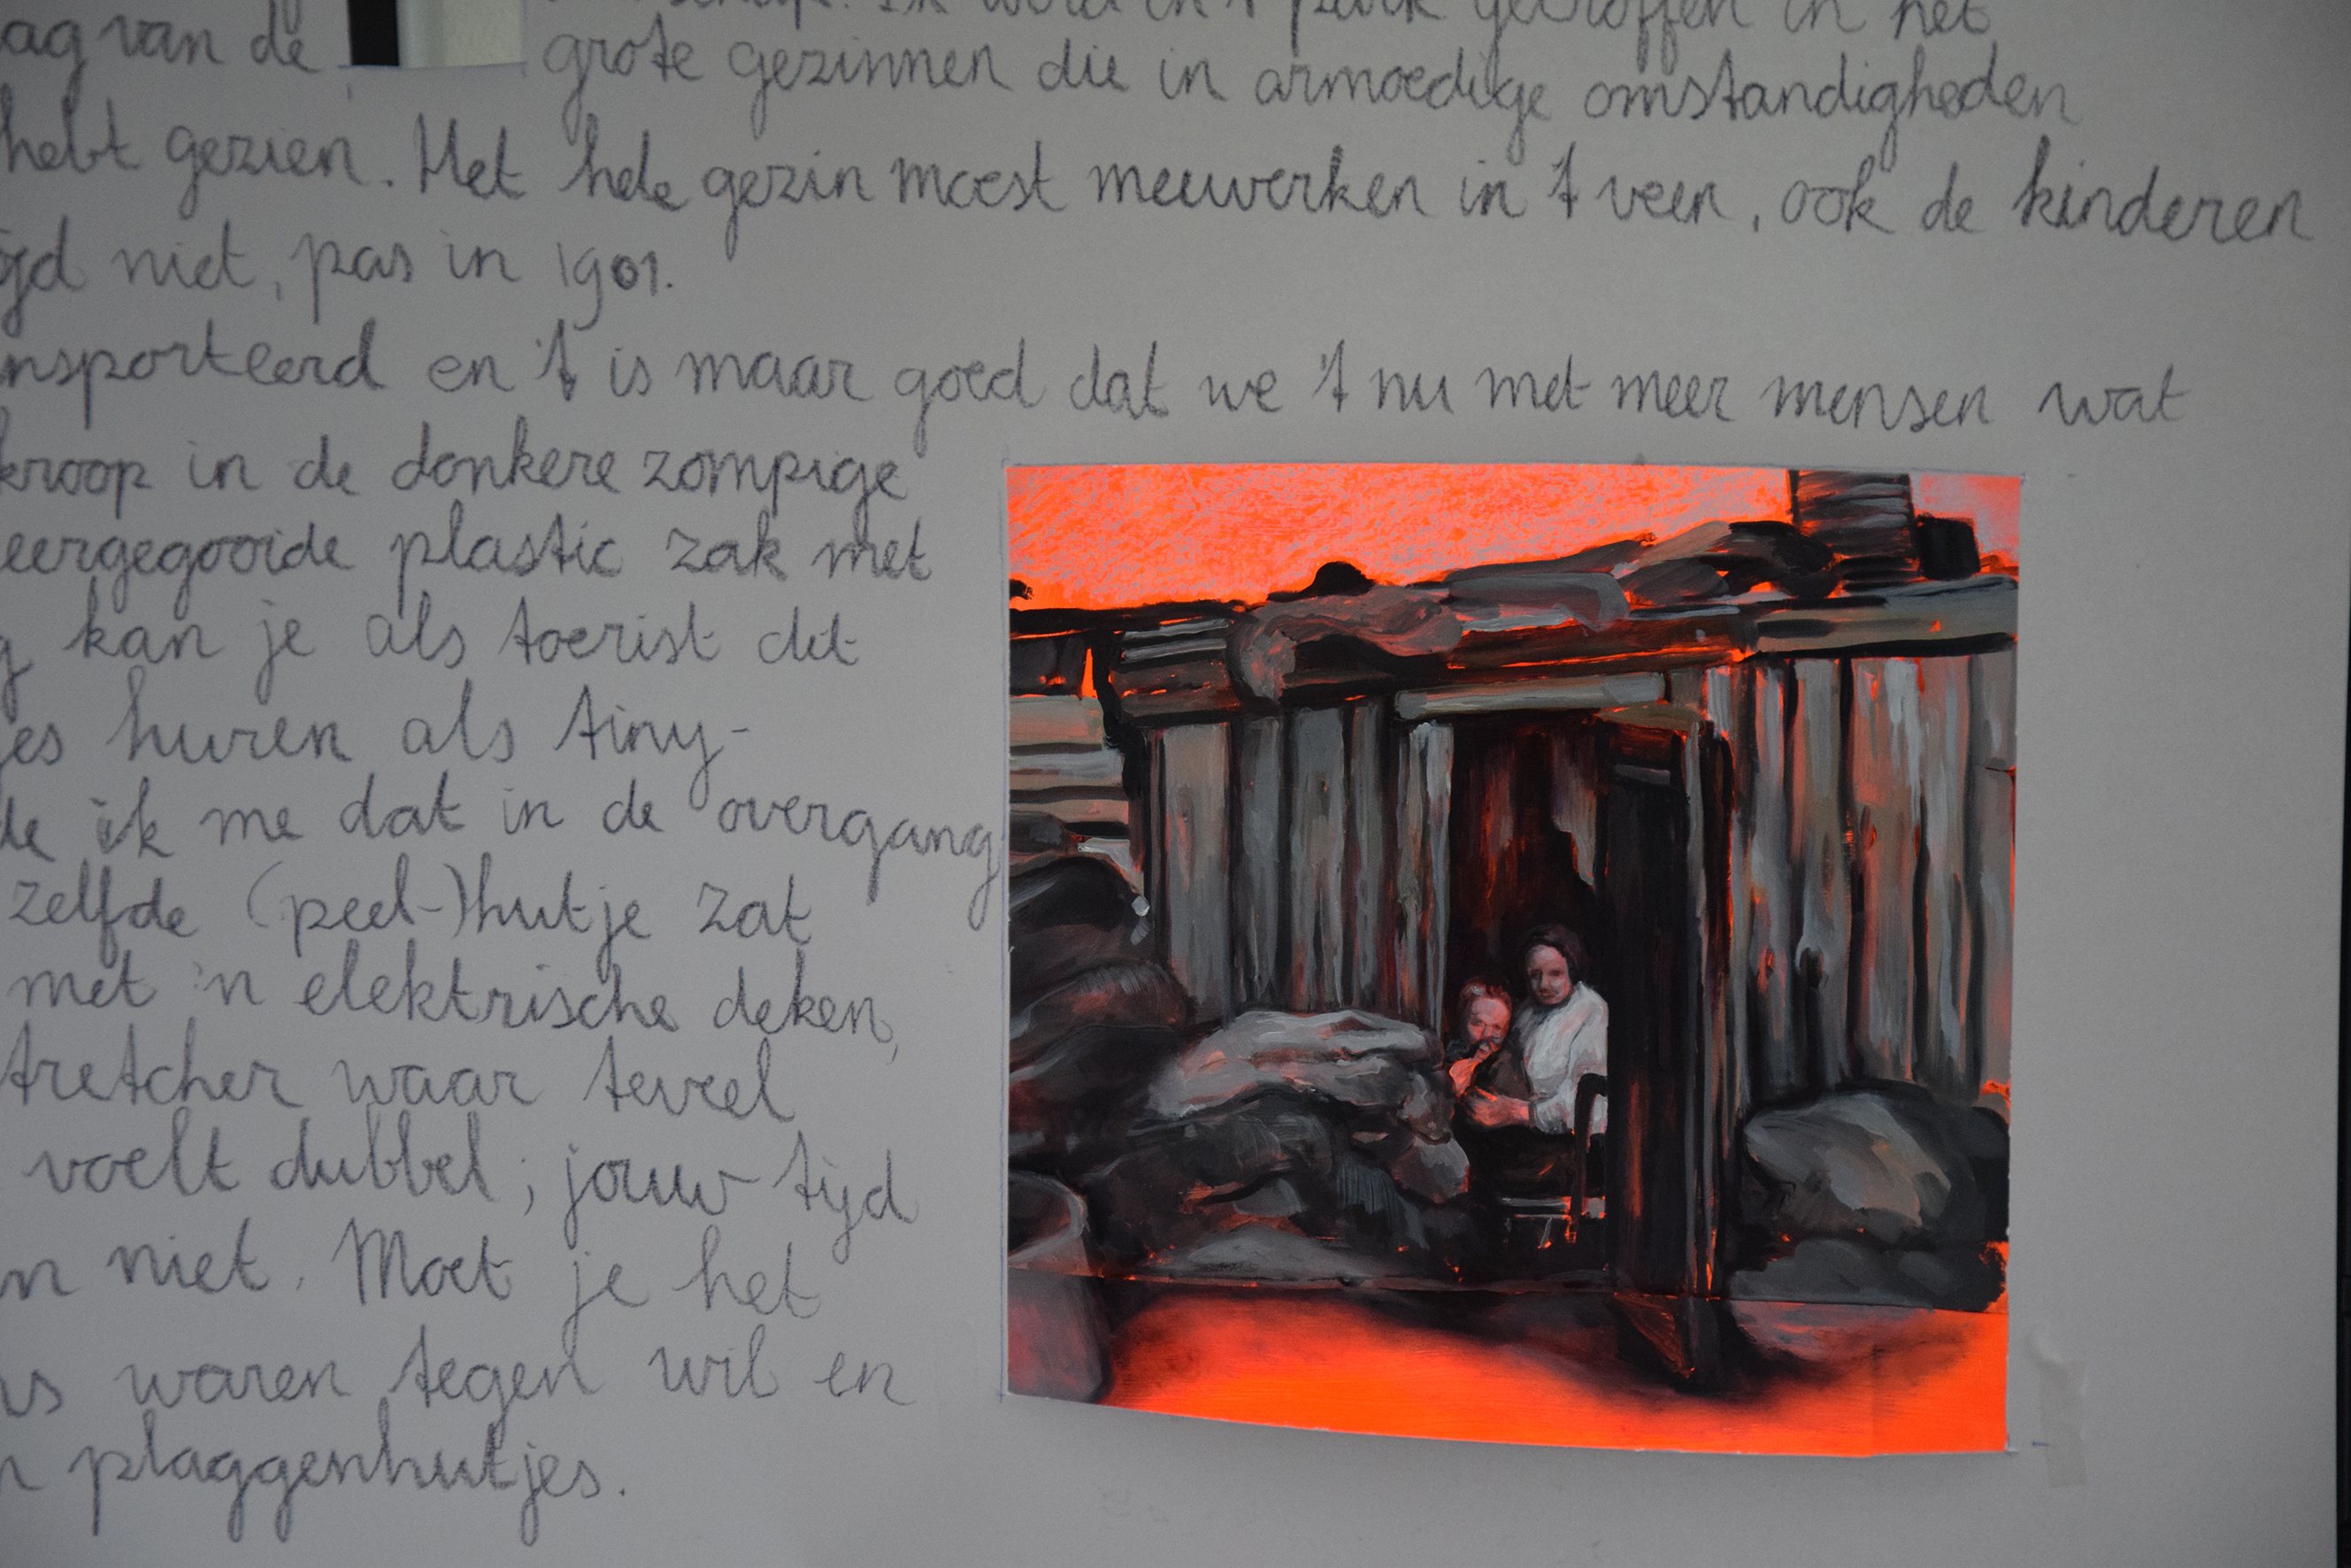 Ik werd in 't park getroffen in het
van de grote gezinnen die in armoedige omstandigheden
hebt gezien. Het hele gezin moest meewerken in 't veen, ook de kinderen
niet, pas in 1901.
nsporteerd en 't is maar goed dat we 't nu met meer mensen wat
kroop in de donkere zompige
eergegooide plastic zak met
kan je als toerist dit
es huren als tiny-
de ik me dat in de overgang
zelfde (peel-)hutje zat
met 'n elektrische deken,
tretcher waar teveel
voelt dubbel; jouw tijd
n niet. Moet je het
ns waren tegen wil en
plaggenhutjes.